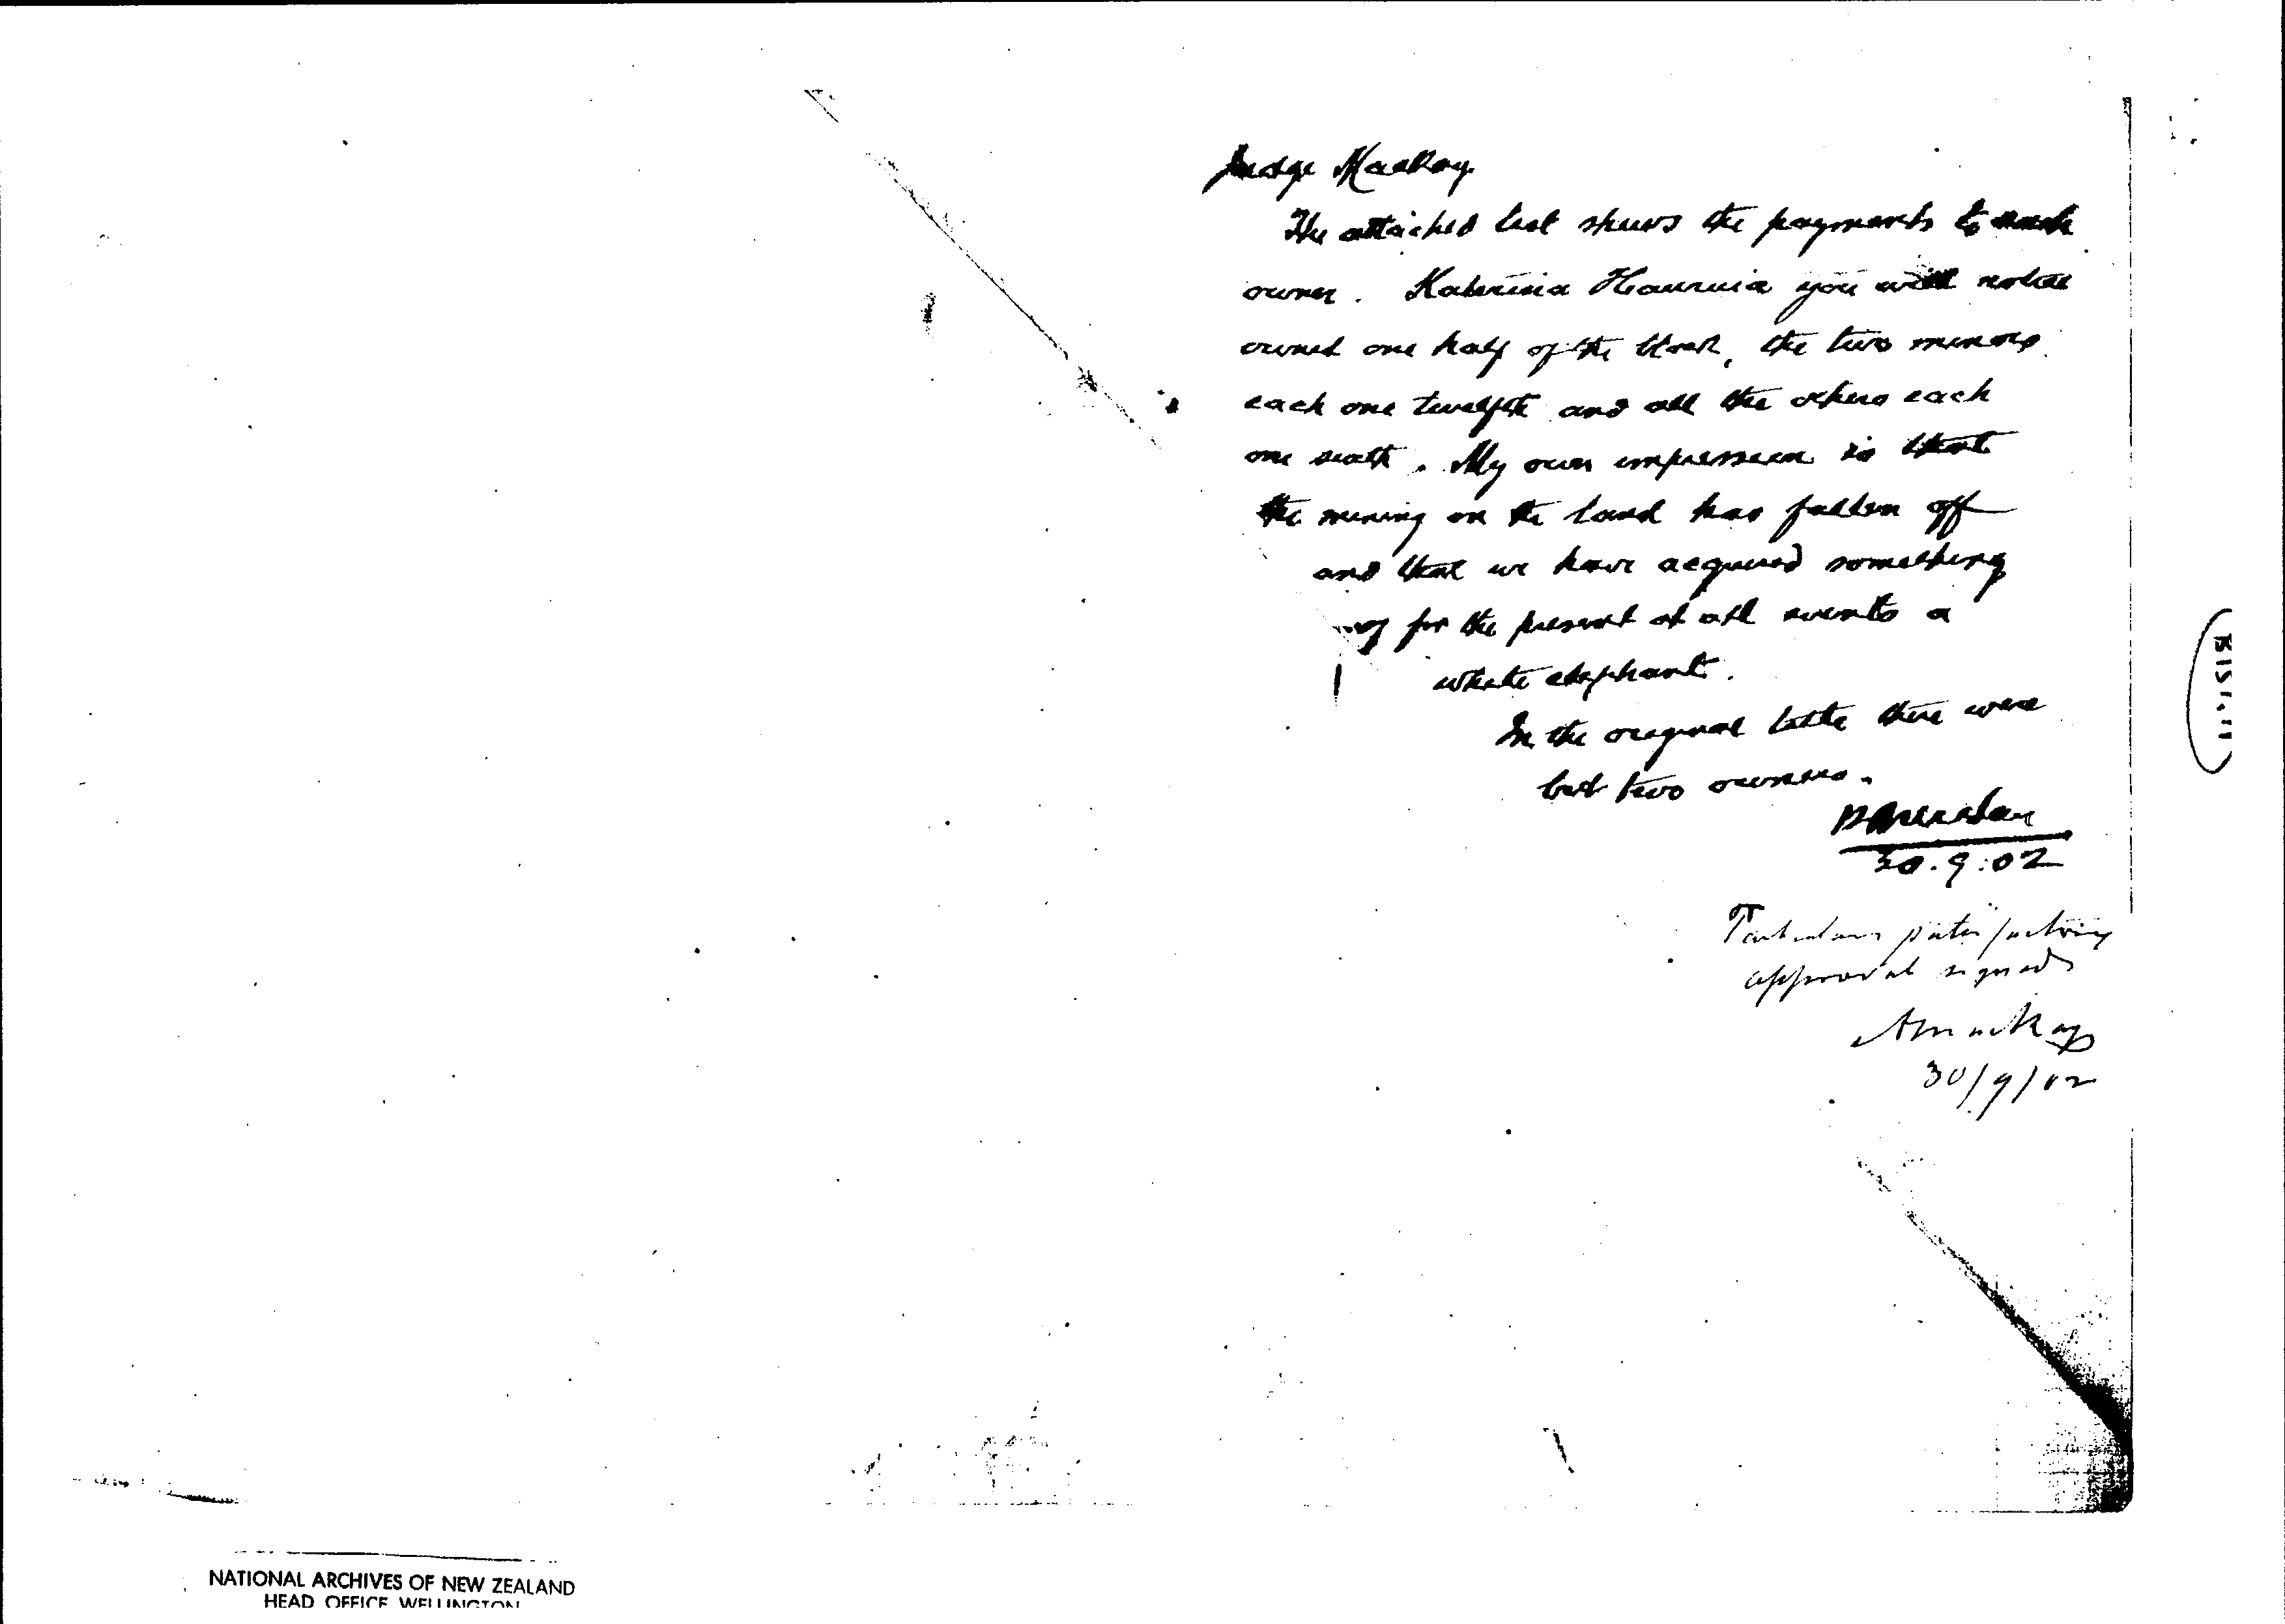 Judge Mackay
The attached list shews the payments to each
owner. Katerina Hauruia you will notice
owned one half of the block, the two minors
each one twelfth and all the others each
one sixth. My own impression is that
the mining on the land has fallen off
and that we have acquired something
for the present at all events a
white elephant.
In the original title there were
but two owners.
30.9.02
approval signed
A Mackay
30/9/02
NATIONAL ARCHIVES OF NEW ZEALAND
HEAD OFFICE WELLINGTON